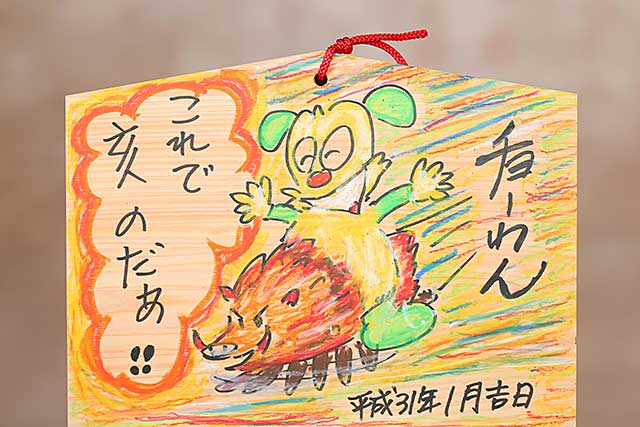 これで
亥のだあ!!
チョーわん
平成31年1月吉日